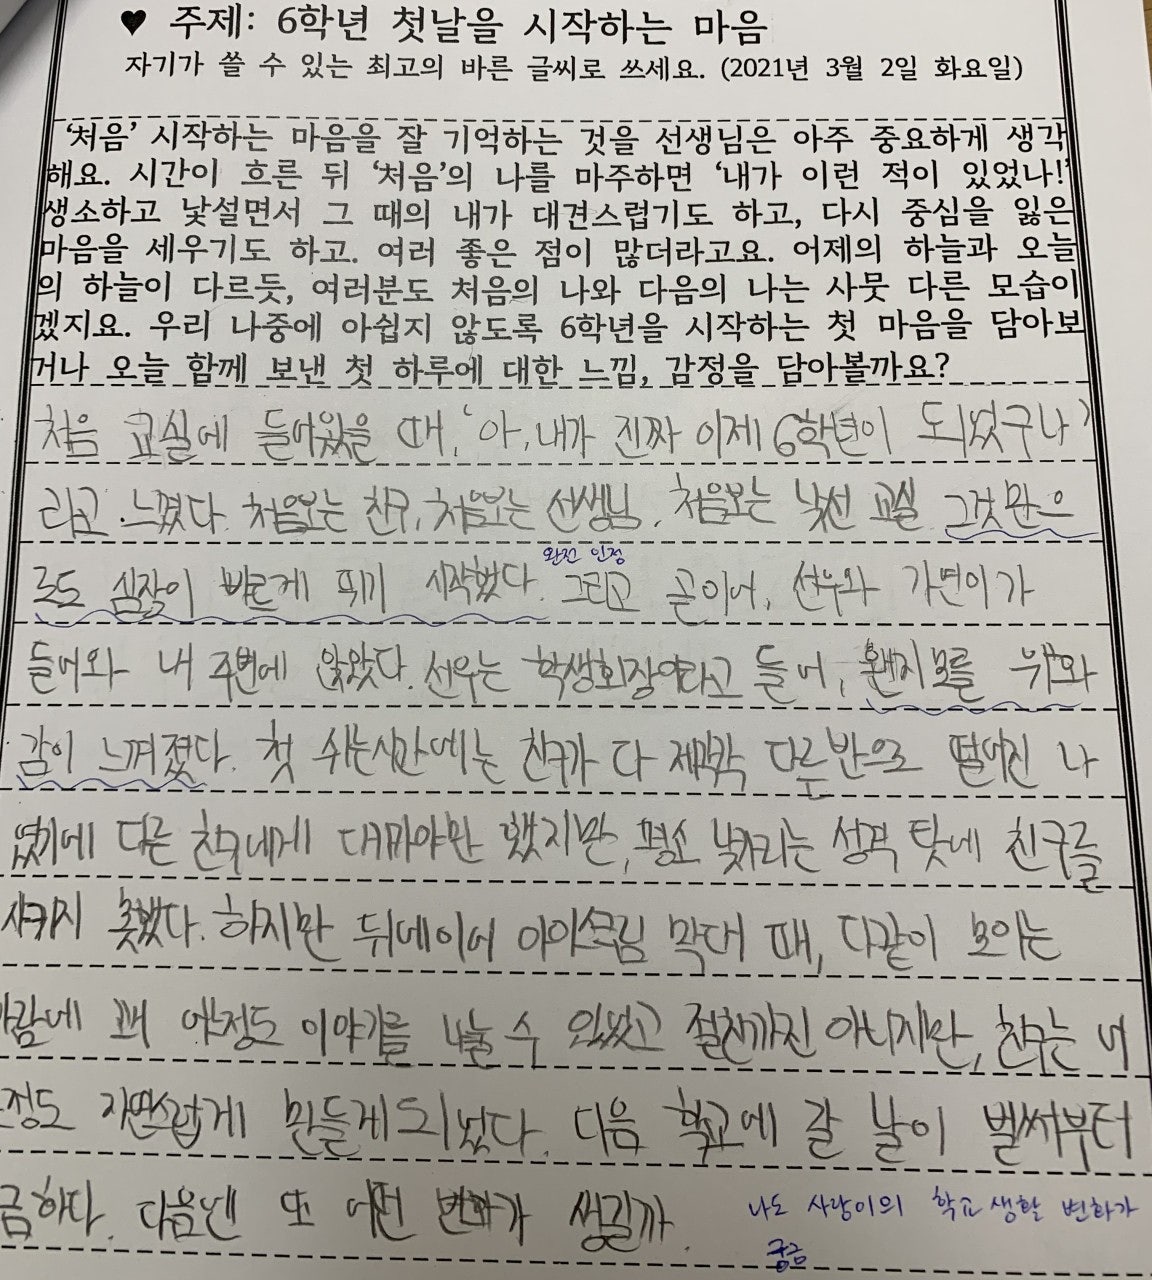 ♥ 주제: 6학년 첫날을 시작하는 마음
자기가 쓸 수 있는 최고의 바른 글씨로 쓰세요. (2021년 3월 2일 화요일)
‘처음’ 시작하는 마음을 잘 기억하는 것을 선생님은 아주 중요하게 생각
해요. 시간이 흐른 뒤 ‘처음’의 나를 마주하면 ‘내가 이런 적이 있었나!’
생소하고 낯설면서 그 때의 내가 대견스럽기도 하고, 다시 중심을 잃은
마음을 세우기도 하고. 여러 좋은 점이 많더라고요. 어제의 하늘과 오늘
의 하늘이 다르듯, 여러분도 처음의 나와 다음의 나는 사뭇 다른 모습이
겠지요. 우리 나중에 아쉽지 않도록 6학년을 시작하는 첫 마음을 담아보
거나 오늘 함께 보낸 첫 하루에 대한 느낌, 감정을 담아볼까요?
처음 교실에 들어왔을 때, ‘아, 내가 진짜 이제 6학년이 되었구나’
라고 느꼈다. 처음보는 친구, 처음보는 선생님, 처음보는 낯선 교실 그것만으
완전 인정
로도 심장이 빠르게 뛰기 시작했다. 그리고 곧이어, 선우와 가연이가
들어와 내 주변에 앉았다. 선우는 학생회장이라고 들어, 왠지모를 위화
감이 느껴졌다. 첫 쉬는시간에는 친구가 다 제각각 다른반으로 떨어진 나
였기에 다른 친구에게 대화야만 했지만, 평소 낯가리는 성격 탓에 친구를
사귀지 못했다. 하지만 뒤에이어 아이스크림 막대 때, 다같이 모이는
바람에 꽤 어느정도 이야기를 나눌 수 있었고 절친까진 아니지만, 친구는 어
정도 자연스럽게 만들게되었다. 다음 학교에 갈 날이 벌써부터
금하다. 다음엔 또 어떤 변화가 생길까.
나도 사랑이의 학교 생활 변화가
궁금